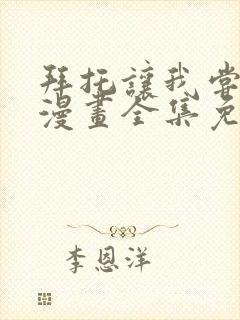 拜托讓我當
漫畫全集免
李恩洋